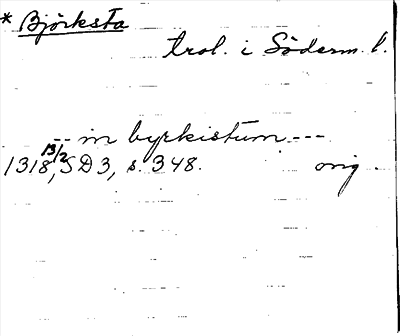 * Björksta
trol. i Söderm. l.
-- in byrkistum ---
1318 13/2, SD 3, s. 348. orig.